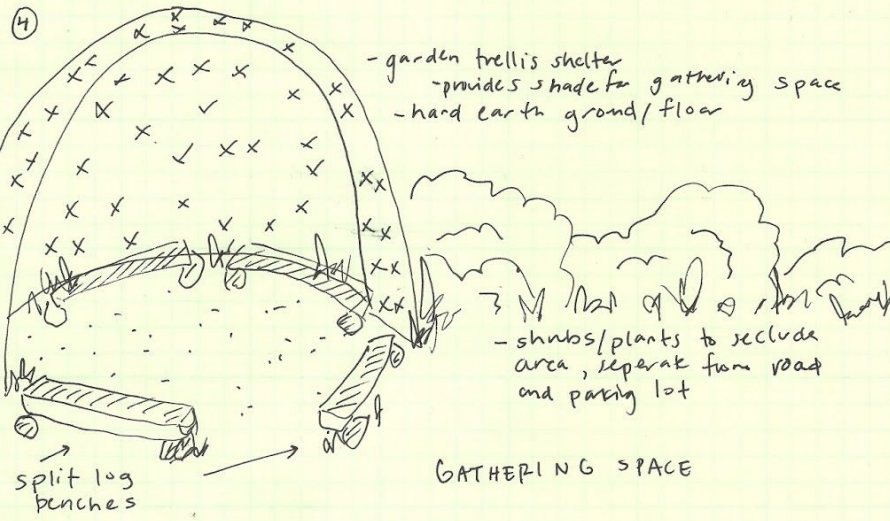 4
- garden trellis shelter
- provides shade for gathering space
- hard earth ground/floor
- shrubs/plants to seclude
area, seperate from road
and paking lot
split log
benches
GATHERING SPACE